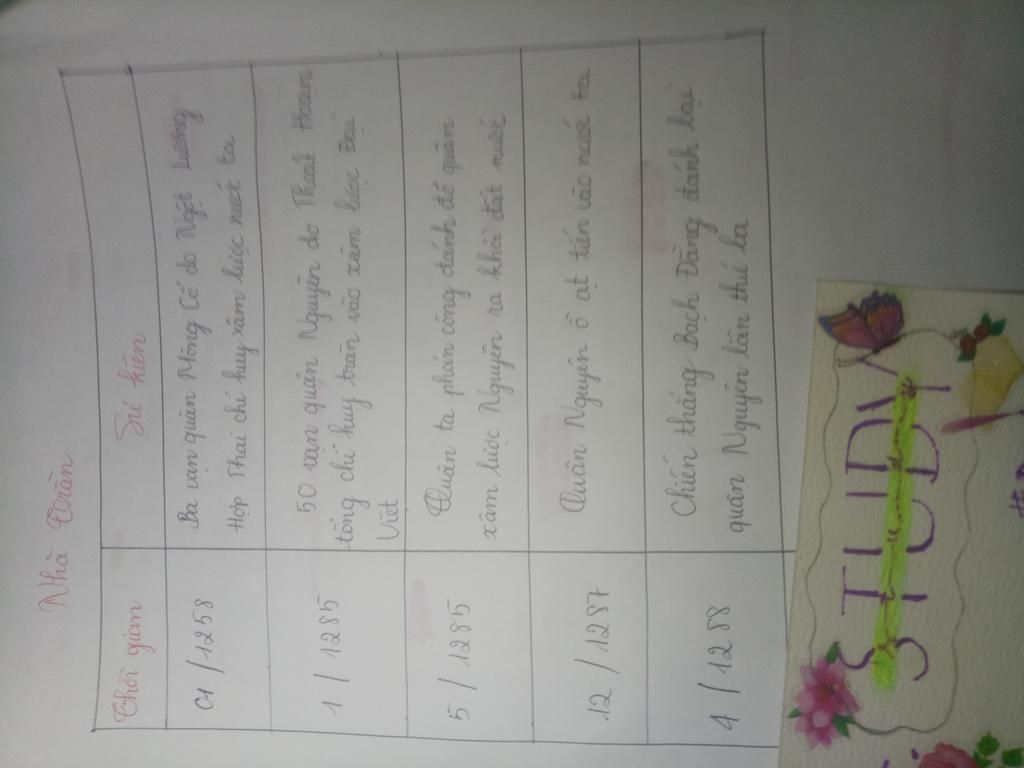 Nhà Trần
Thời gian
Sự kiện
01/1258
Ba vạn quân Mông Cổ do Ngột Lương
Hợp Thai chỉ huy xâm lược nước ta
1/1285
50 vạn quân Nguyên do Thoat Hoan
tổng chỉ huy tràn vào xâm lược Đại
Việt
5/1285
Quân ta phản công đánh đổ quân
xâm lược Nguyên ra khỏi đất nước
12/1287
Quân Nguyên ồ ạt tiến vào nước ta
4/1288
Chiến thắng Bạch Đằng đánh bại
quân Nguyên lần thứ ba
STUDY